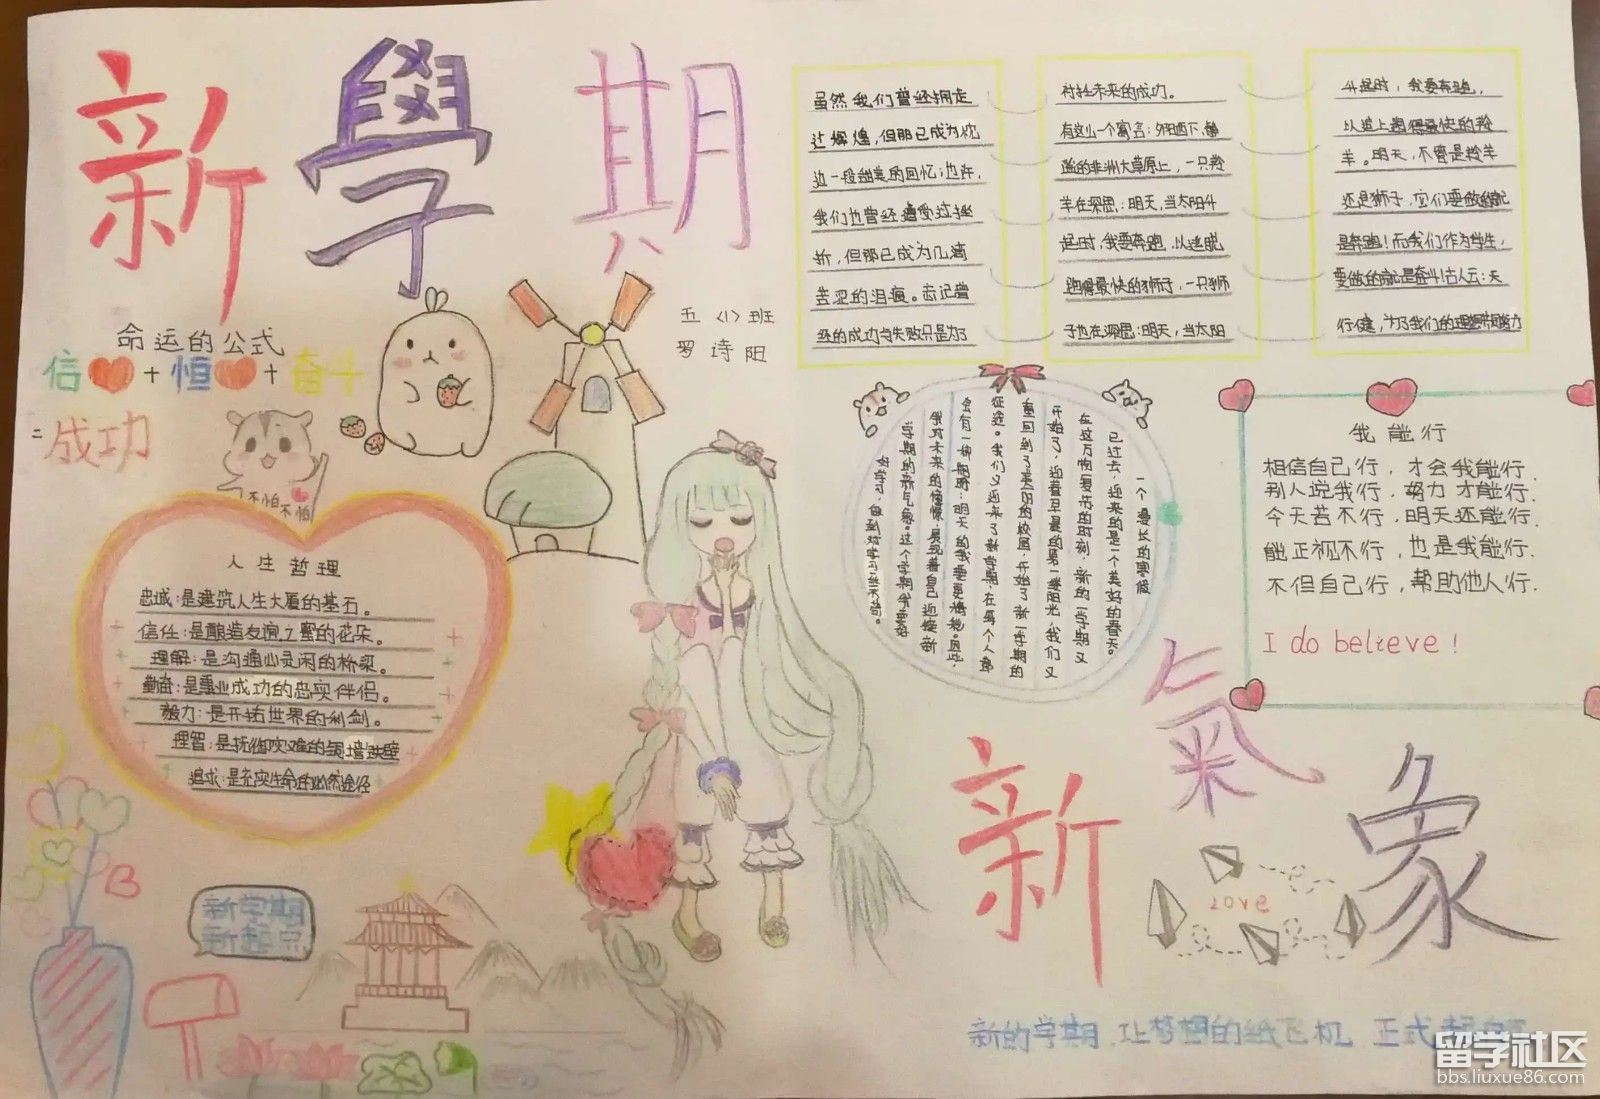 新學期
五〈1〉班
罗诗阳
命运的公式
信❤+恒❤+奋斗
=成功
不怕不怕
人生哲理
忠诚:是建筑人生大厦的基石。
信任:是酿造友谊之蜜的花朵。
理解:是沟通心灵闲的桥梁。
勤奋:是事业成功的忠实伴侣。
毅力:是开拓世界的利剑。
理智:是抚御灾难的铜墙铁壁
追求:是充实生命的必然途径
虽然我们曾经拥走
过辉煌,但那已成为枕
边一段甜美的回忆;也许,
我们也曾经遭受过挫
折,但那已成为几滴
苦涩的泪痕。忘记曾
经的成功与失败只是为了
衬托未来的成功。
有这么一个寓言:夕阳西下,
的非洲大草原上,一只羚
羊在深思:明天,当太阳升
起时,我要奔跑,以逃脱
跑得最快的狮子,一只狮
子也在深思:明天,当太阳
升起时,我要奔跑,
以追上跑得最快的羚
羊。明天,不管是羚羊
还是狮子,它们要做的就
是奔跑!而我们作为学生,
要做的就是奋斗!古人云:天
行健,为了我们的理想
一个漫长的寒假
已过去,迎来的是一个美好的春天。
在这万物复苏的时刻,新的一学期又
开始了,迎着早晨的第一缕阳光,我们又
重回到了美丽的校园,开始了新一学期的
征途。我们又迎来了新学期,在每个人都
会有一种期盼:明天的我要更
我对未来的憧憬,展现着自己迎接新
学期的新气象。这个学期我要好
我能行
相信自己行,才会我能行.
别人说我行,努力才能行.
今天若不行,明天还能行.
能正视不行,也是我能行.
不但自己行,帮助他人行.
I do believe!
新氣象
Love
新学期
新起点
新的学期 让梦想的纸飞机 正式起航
留学社区
bbs.liuxue86.com